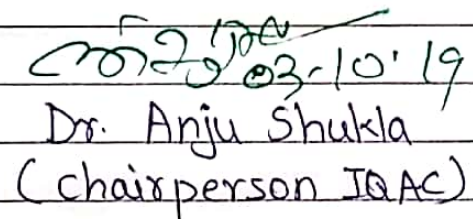 03-10-19
Dr. Anju Shukla
(Chairperson IQAC)